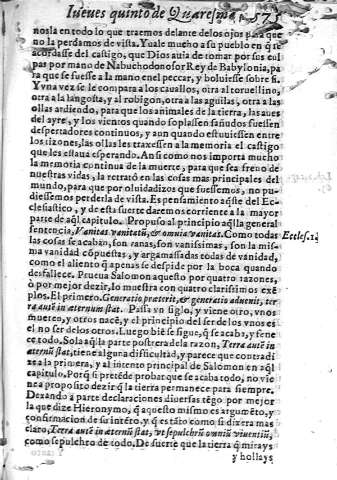 Iueues quinto de Quaresma. 575
nosla en todo lo que traemos delante de los ojos para que
no la perdamos de vista. Yuale mucho a su pueblo en q̃ re
cordasse del castigo, que Dios auia de tomar por sus cul
pas por mano de Nabuchodonosor Rey de Babylonia, pa
ra que se fuesse a la mano en el peccar, y boluiesse sobre si.
Y vna vez se le compara a los cauallos, otra al toruellino,
otra a la langosta, y al robigon, otra a las aguilas, otra a las
ollas ardiendo, para que los animales de la tierra, las aues
del ayre, y los vientos quando soplassen sañudos fuessen
despertadores continuos, y aun quando estuuiessen entre
los tizones, las ollas les traxessen a la memoria el castigo
que les estaua esperando. Ansi como nos importa mucho
la memoria continua de la muerte, para que sea freno de
nuestras vidas, la retratò en las cosas mas principales del
mundo, para que por oluidadizos que fuessemos, no pu-
diessemos perderla de vista. Es pensamiento aq̃ste del Ec-
clesiastico, y de esta suerte daremos corriente a la mayor
parte de aq̃l capitulo. Propuso al principio aq̃lla general
sentencia, Vanitas vanitatũ, & omnia vanitas. Como todas
Eccles. 1.
las cosas se acaban, son vanas, son vanissimas, son la mis-
ma vanidad cõpuestas, y argamassadas todas de vanidad,
como el aliento q̃ apenas se despide por la boca quando
desfallece. Prueua Salomon aquesto por quatro razones,
o por mejor dezir, lo muestra con quatro clarissimos exẽ
plos. El primero. Generatio præterit, & generatio aduenit, ter
ra autẽ in æternum stat. Passa vn siglo, y viene otro, vnos
mueren, y otros nacẽ, y el principio del ser de los vnos es
el no ser de los otros. Luego biẽ se sigue, q̃ se acaba, y fene
ce todo. Sola aq̃lla parte postrera de la razon, Terra autẽ in
æternũ stat, tiene alguna difficultad, y parece que contradi
ze a la primera, y al intento principal de Salomon en aq̃l
capitulo. Porq̃ si pretẽde probar que se acaba todo, no vie
ne a proposito dezir q̃ la tierra permanece para siempre.
Dexando a parte declaraciones diuersas tẽgo por mejor
la que dize Hieronymo, q̃ aquesto mismo es argumẽto, y
confirmacion de su intẽto, y q̃ es tãto como si dixera mas
claro, Terra autẽ in æternũ stat, vt sepulchrũ omniũ viuentiũ,
como sepulchro de todo. De suerte que la tierra q̃ mirays
y hollays